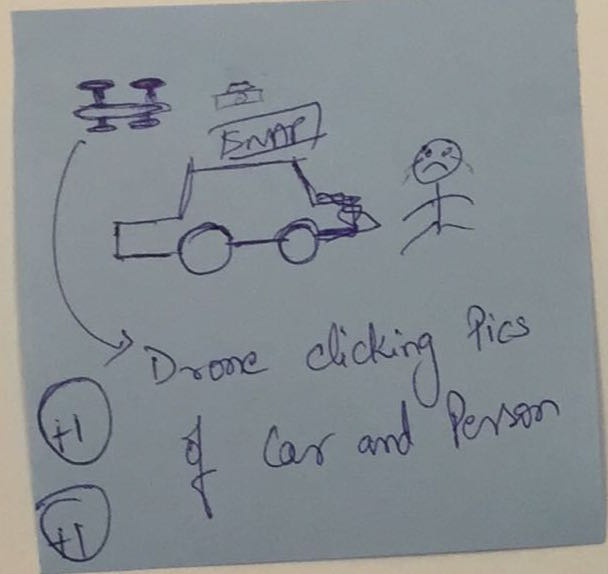 SNAP
Drone clicking Pics
of Car and Person
+1
+1